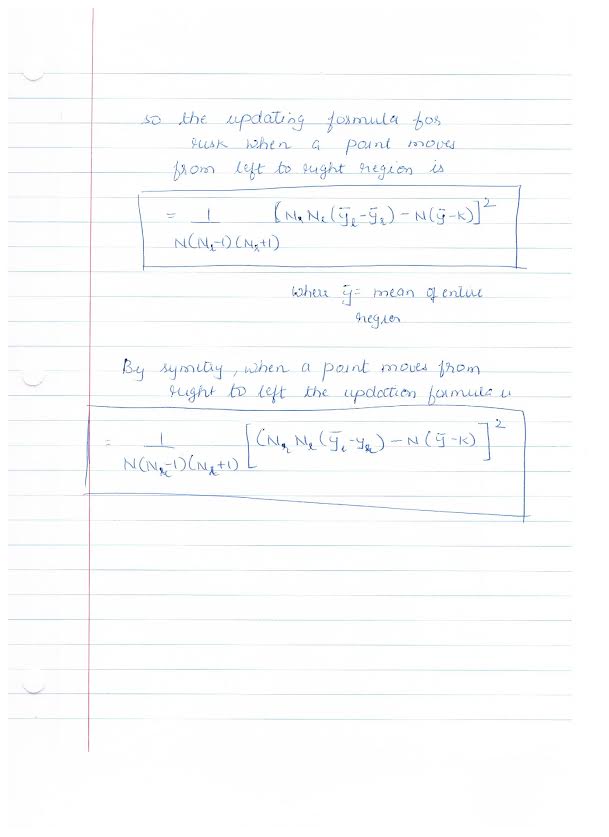 so the updating formula for
risk when a point moves
from left to right region is
= 1/(N(N_l-1)(N_r+1)) [N_r N_l (ȳ_l - ȳ_r) - N(ȳ-k)]^2
where ȳ = mean of entire
region
By symitry, when a point moves from
right to left the updation formula is
= 1/(N(N_r-1)(N_l+1)) [(N_r N_l (ȳ_l - y_r) - N(ȳ-k)]^2